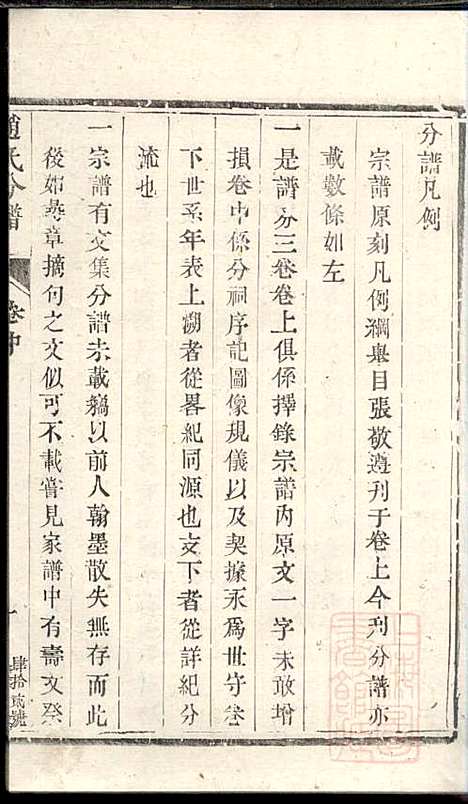 分譜凡例
宗譜原刻凡例綱舉目張敬遵刊于卷上今刋分譜亦
載數條如左
一是譜分三卷卷上俱係擇錄宗譜內原文一字未敢增
損卷中係分祠序記圖像規儀以及契據永爲世守卷
下世系年表上溯者從畧紀同源也支下者從詳紀分
流也
一宗譜有文集分譜未載竊以前人翰墨散失無存而此
後如尋章摘句之文似可不載嘗見家譜中有壽文祭
趙氏分譜
卷中
一
肆拾貳號